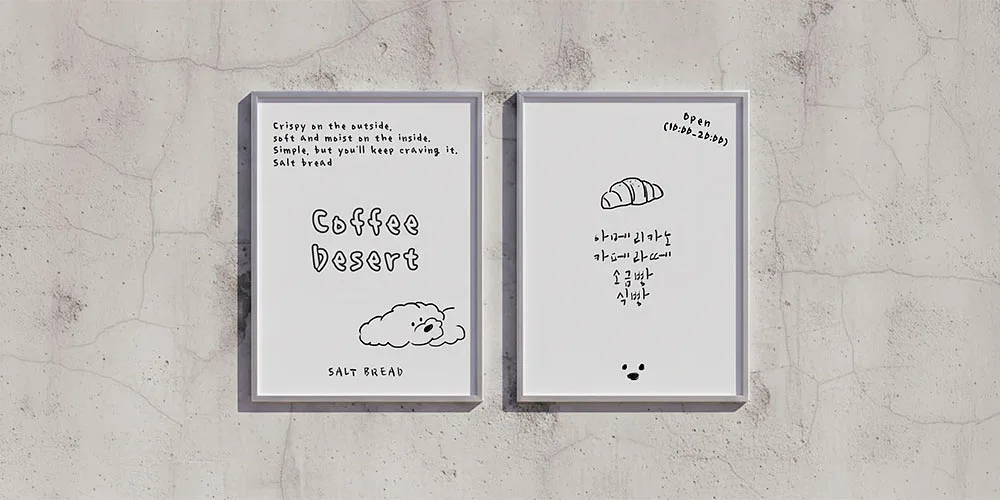 Crispy on the outside,
soft and moist on the inside.
Simple, but you'll keep craving it.
Salt bread
Coffee
Desert
SALT BREAD
Open
(10:00_20:00)
아메리카노
카페라떼
소금빵
식빵